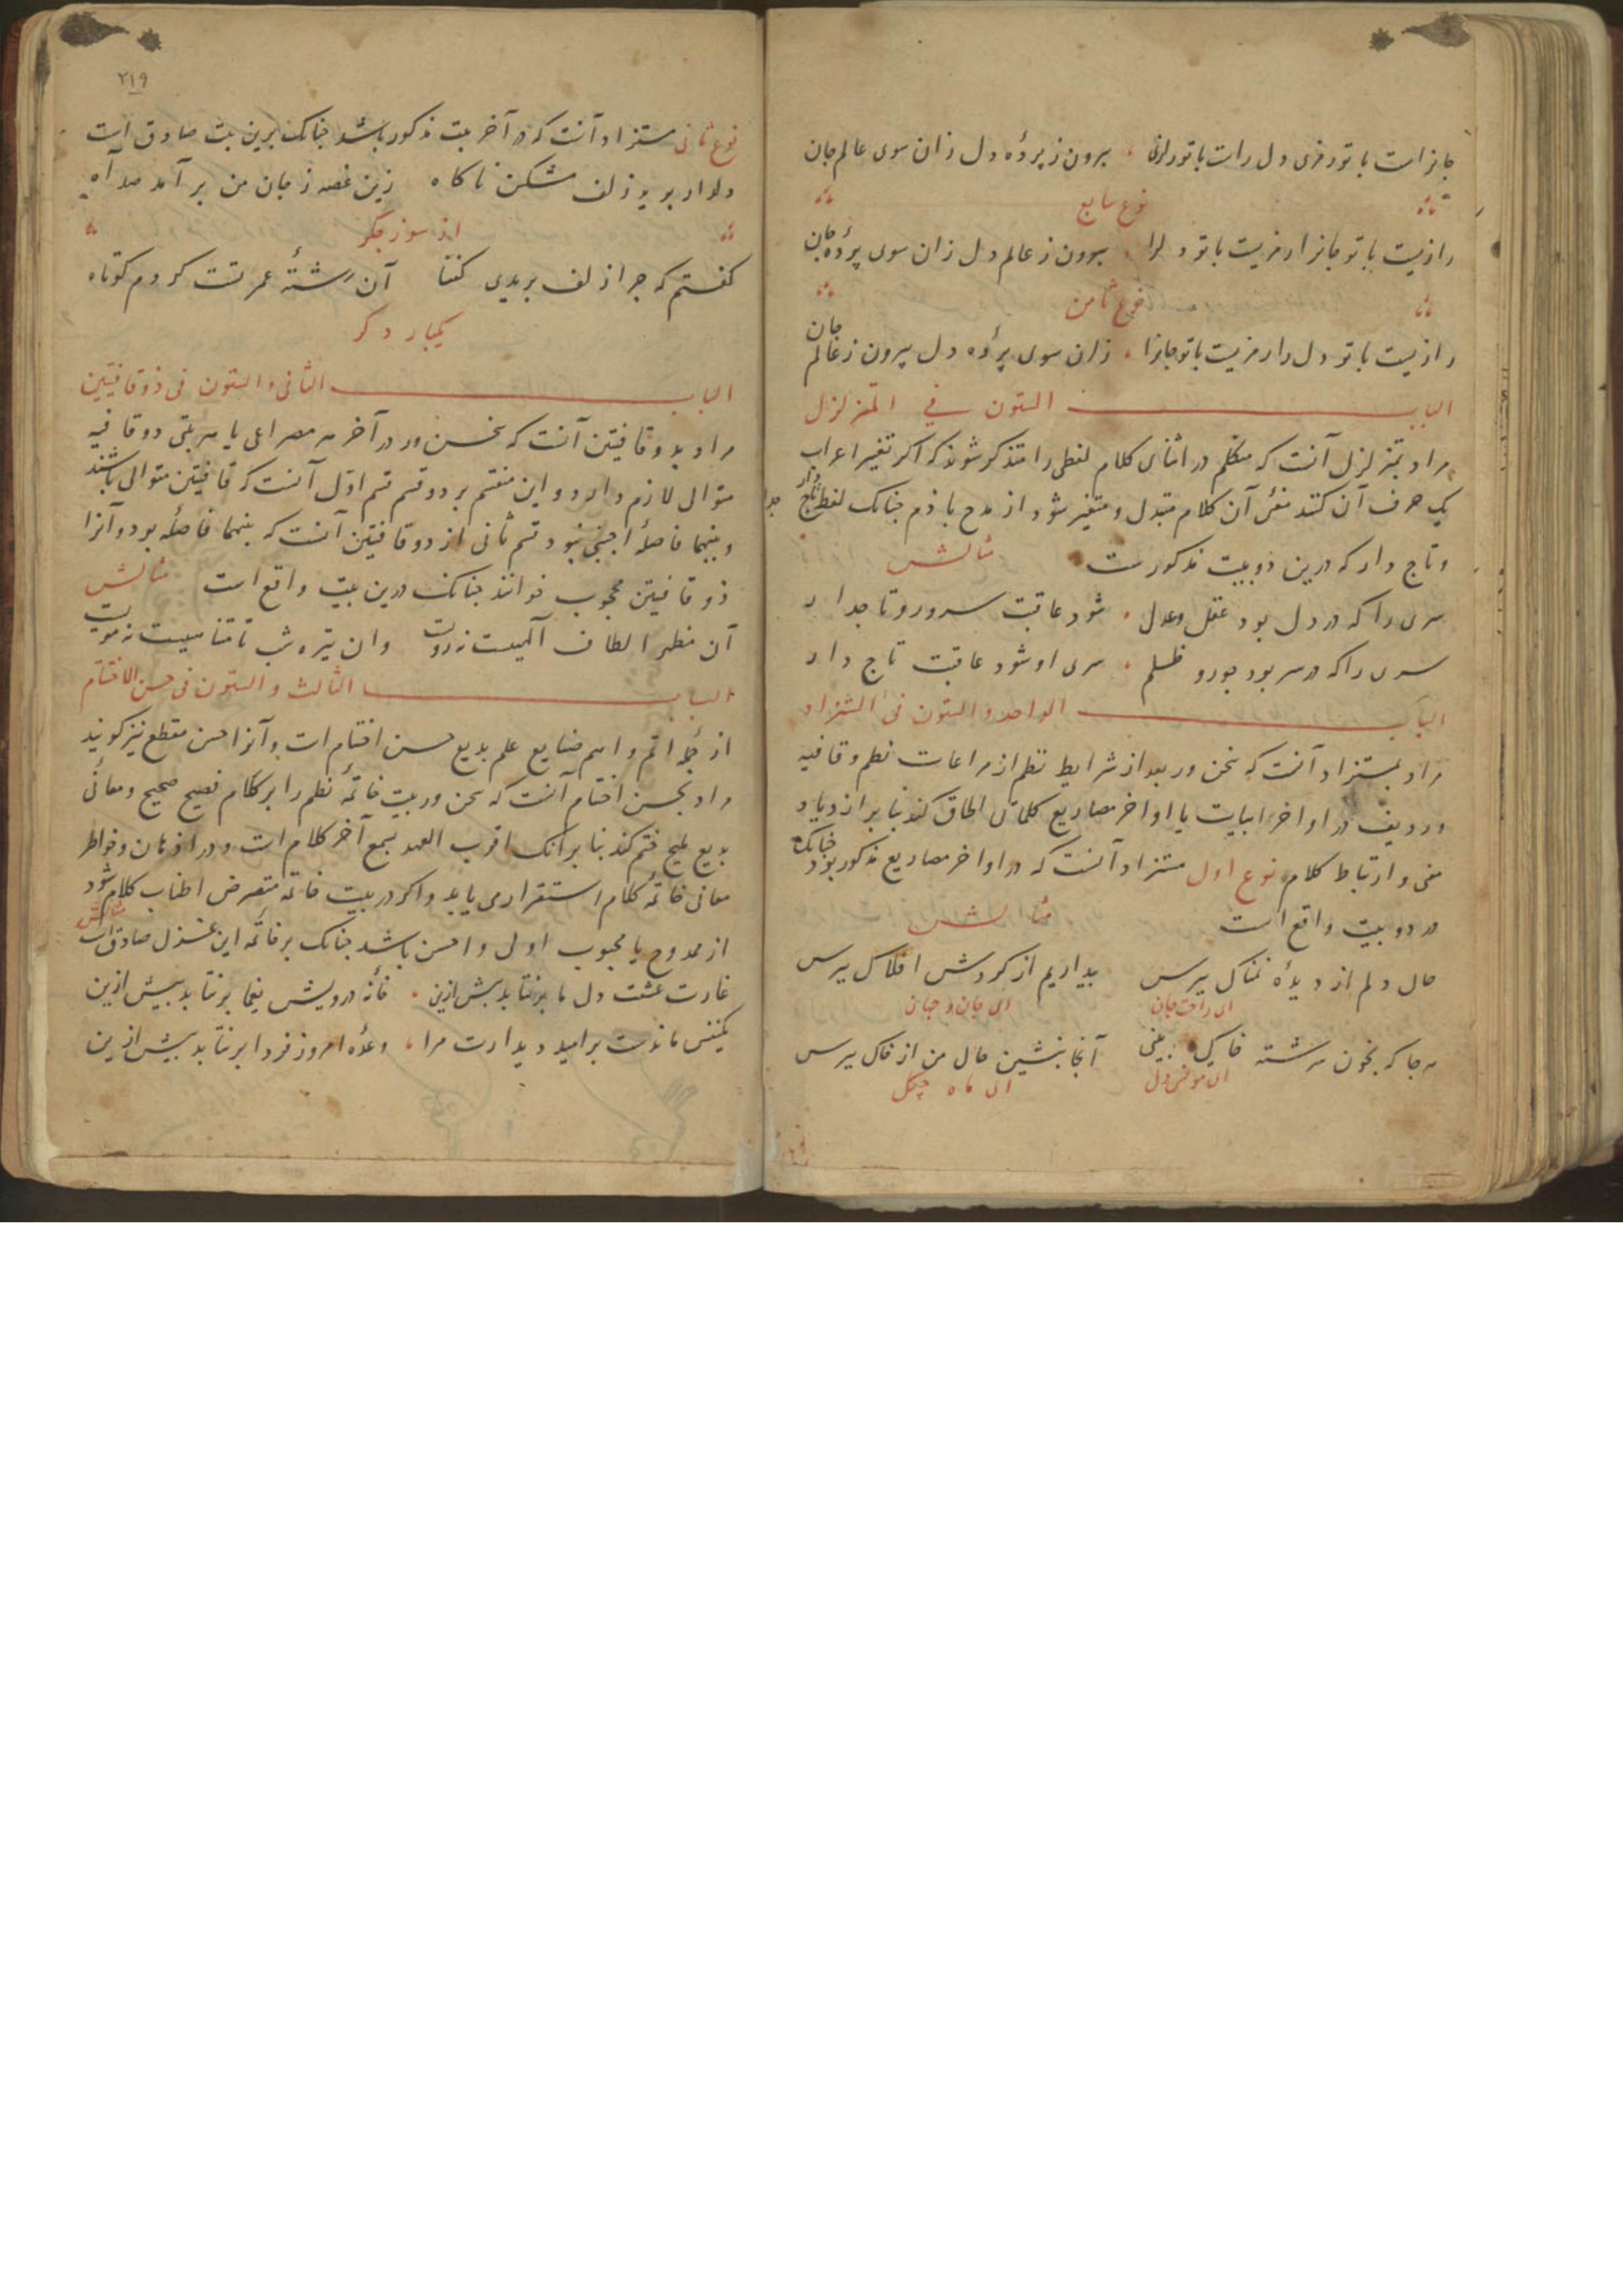 جانراست با تو رمزی دل راست با تو رازی بیرون ز پردۀ دل زان سوی عالم جان
نوع سابع
رازیست با تو جانرا رمزیست با تو دلرا بیرون ز عالم دل زان سوی پردۀ جان
نوع ثامن
رازیست با تو دل را رمزیست با تو جانرا زان سوی پردۀ دل بیرون ز عالم جان
الباب الستون في المتزلزل
مراد بمتزلزل آنست که متکلم در اثنای کلام لفظی را متذکر شوند که اکر تغیر اعراب
یک حرف آن کنند معنی آن کلام متبدل و متغیر شود از مدح باذم جنانک لفظ تاج دار
و تاج دار که درین دو بیت مذکورست مثالش
سری را که در دل بود عقل و عدل شود عاقبت سرور و تاجدار
سری را که در سر بود جور و ظلم سری او شود عاقبت تاج دار
الباب الواحد و الستون فی المستزاد
مراد بمستزاد آنست که سخن ور بعد از شرایط نظم از مراعات نظم و قافیه
و ردیف در اواخر ابیات یا اواخر مصاریع کلماتی الحاق کند بنا بر ازدیاد
معنی و ارتباط کلام نوع اول مستزاد آنست که در اواخر مصاریع مذکور بود جنانک
در دو بیت واقع است مثالش
حال دلم از دیدۀ نمناک بپرس بیداریم از کردش افلاک بپرس
ای راحت جان ای جان و جهان
هر جا که بخون سرشته خاکی بینی آنجا بنشین حال من از خاک بپرس
ای مونس دل ای ماه چکل
۲۱۹
نوع ثانی مستزاد آنست که در آخر بیت مذکور باشد جنانک برین بیت صادق است
دلدار برید زلف مشکین ناکاه زین غصه ز جان من بر آمد صد آه
از سوز جکر
کفتم که جرا زلف بریدی کفتا آن رشتۀ عمر تست کردم کوتاه
یکبار دکر
الباب الثانی و الستون فی ذو قافیتین
مراد بذو قافیتین آنست که سخن ور در آخر هر مصراعی یا هر بیتی دو قافیه
متوالی لازم دارد و این منقسم بر دو قسم قسم اول آنست که قافیتین متوالی باشند
و بینهما فاصلۀ اجنبی نبود قسم ثانی از ذو قافیتین آنست که بینهما فاصله بود و آنرا
ذو قافیتین محجوب خوانند جنانک درین بیت واقع است مثالش
آن مظهر الطاف الهیست نه رویت وان تیره شب نامتناهیست نه مویت
الباب الثالث و الستون فی حسن الاختتام
از جملۀ اتم و اهم صنایع علم بدیع حسن اختتام است و آنرا حسن مقطع نیز کویند
مراد بحسن اختتام آنست که سخن ور بیت خاتمۀ نظم را بر کلام فصیح صحیح و معانی
بدیع ملیح ختم کند بنا برآنک اقرب العهد بسمع آخر کلام است و در اذهان و خواطر
معانی خاتمۀ کلام استقرار می یابد و اکر در بیت خاتمه متعرض اطناب کلام شود
از ممدوح یا محبوب اولی و احسن باشد جنانک بر خاتمۀ این غزل صادق است مثالش
غارت عشقت دل ما برنتابد بیش ازین خانۀ درویش یغما برنتابد بیش ازین
یکنفس ماندست بر امید دیدارت مرا وعدۀ امروز فردا برنتابد بیش ازین